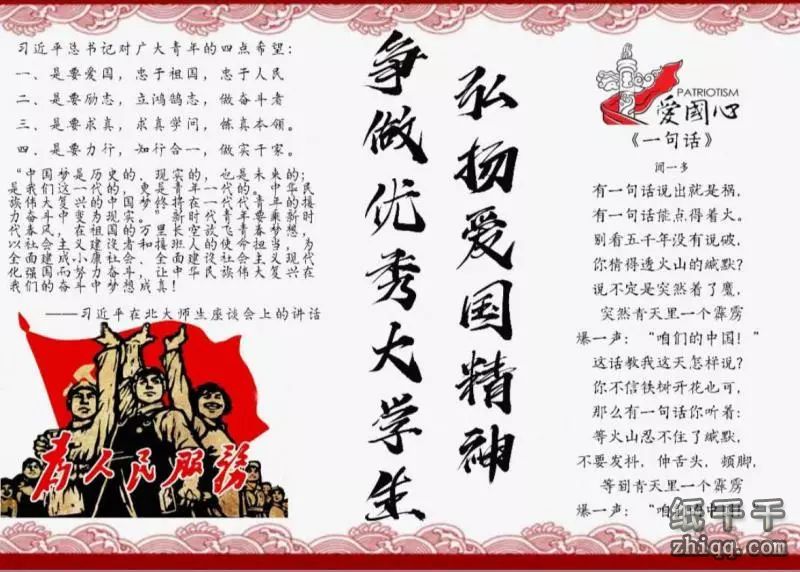 习近平总书记对广大青年的四点希望：
一、是要爱国，忠于祖国，忠于人民
二、是要励志，立鸿鹄志，做奋斗者
三、是要求真，求真学问，练真本领。
四、是要力行，知行合一，做实干家。
“中国梦是历史的、现实的，也是未来的；
是我们这一代的，更是青年一代的。中华民
族伟大复兴的中国梦终将在一代代青年的接
力奋斗中变为现实。”新时代青年要乘新时
代春风，在祖国的万里长空放飞青春梦想，
以社会主义建设者和接班人的使命担当，为
全面建成小康社会、全面建设社会主义现代
化强国而努力奋斗，让中华民族伟大复兴在
我们的奋斗中梦想成真！
——习近平在北大师生座谈会上的讲话
为人民服务
争做优秀大学生
弘扬爱国精神
PATRIOTISM
爱國心
《一句话》
闻一多
有一句话说出就是祸，
有一句话能点得着火。
别看五千年没有说破，
你猜得透火山的缄默？
说不定是突然着了魔，
突然青天里一个霹雳
爆一声：“咱们的中国！”
这话教我这天怎样说？
你不信铁树开花也可，
那么有一句话你听着：
等火山忍不住了缄默，
不要发抖，伸舌头，顿脚，
等到青天里一个霹雳
爆一声：“咱们的中国！”
纸千千
zhiqq.com